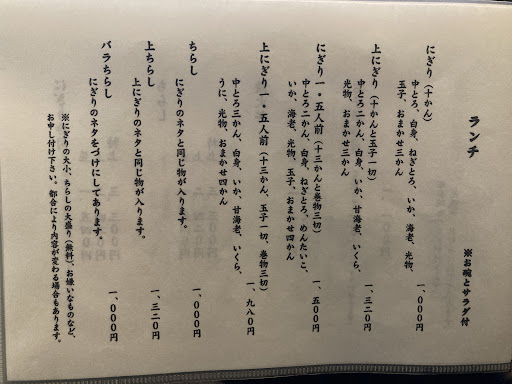 ランチ
※お碗とサラダ付
にぎり（十かん） 一、〇〇〇円
中とろ、白身、ねぎとろ、いか、海老、光物、
玉子、おまかせ三かん
上にぎり（十かんと玉子一切） 一、三二〇円
中とろ二かん、白身、いか、甘海老、いくら、
光物、おまかせ三かん
にぎり一・五人前（十三かんと巻物三切） 一、五〇〇円
中とろ二かん、白身、ねぎとろ、めんたいこ、
いか、海老、光物、玉子、おまかせ四かん
上にぎり一・五人前（十三かん、玉子一切、巻物三切） 一、九八〇円
中とろ三かん、白身、いか、甘海老、いくら、
うに、光物、おまかせ四かん
ちらし 一、〇〇〇円
にぎりのネタと同じ物が入ります。
上ちらし 一、三二〇円
上にぎりのネタと同じ物が入ります。
バラちらし 一、〇〇〇円
にぎりのネタをづけにしてあります。
※にぎりの大小、ちらしの大盛り（無料）、お嫌いなものなど、
お申し付け下さい。都合により内容が変わる場合もあります。